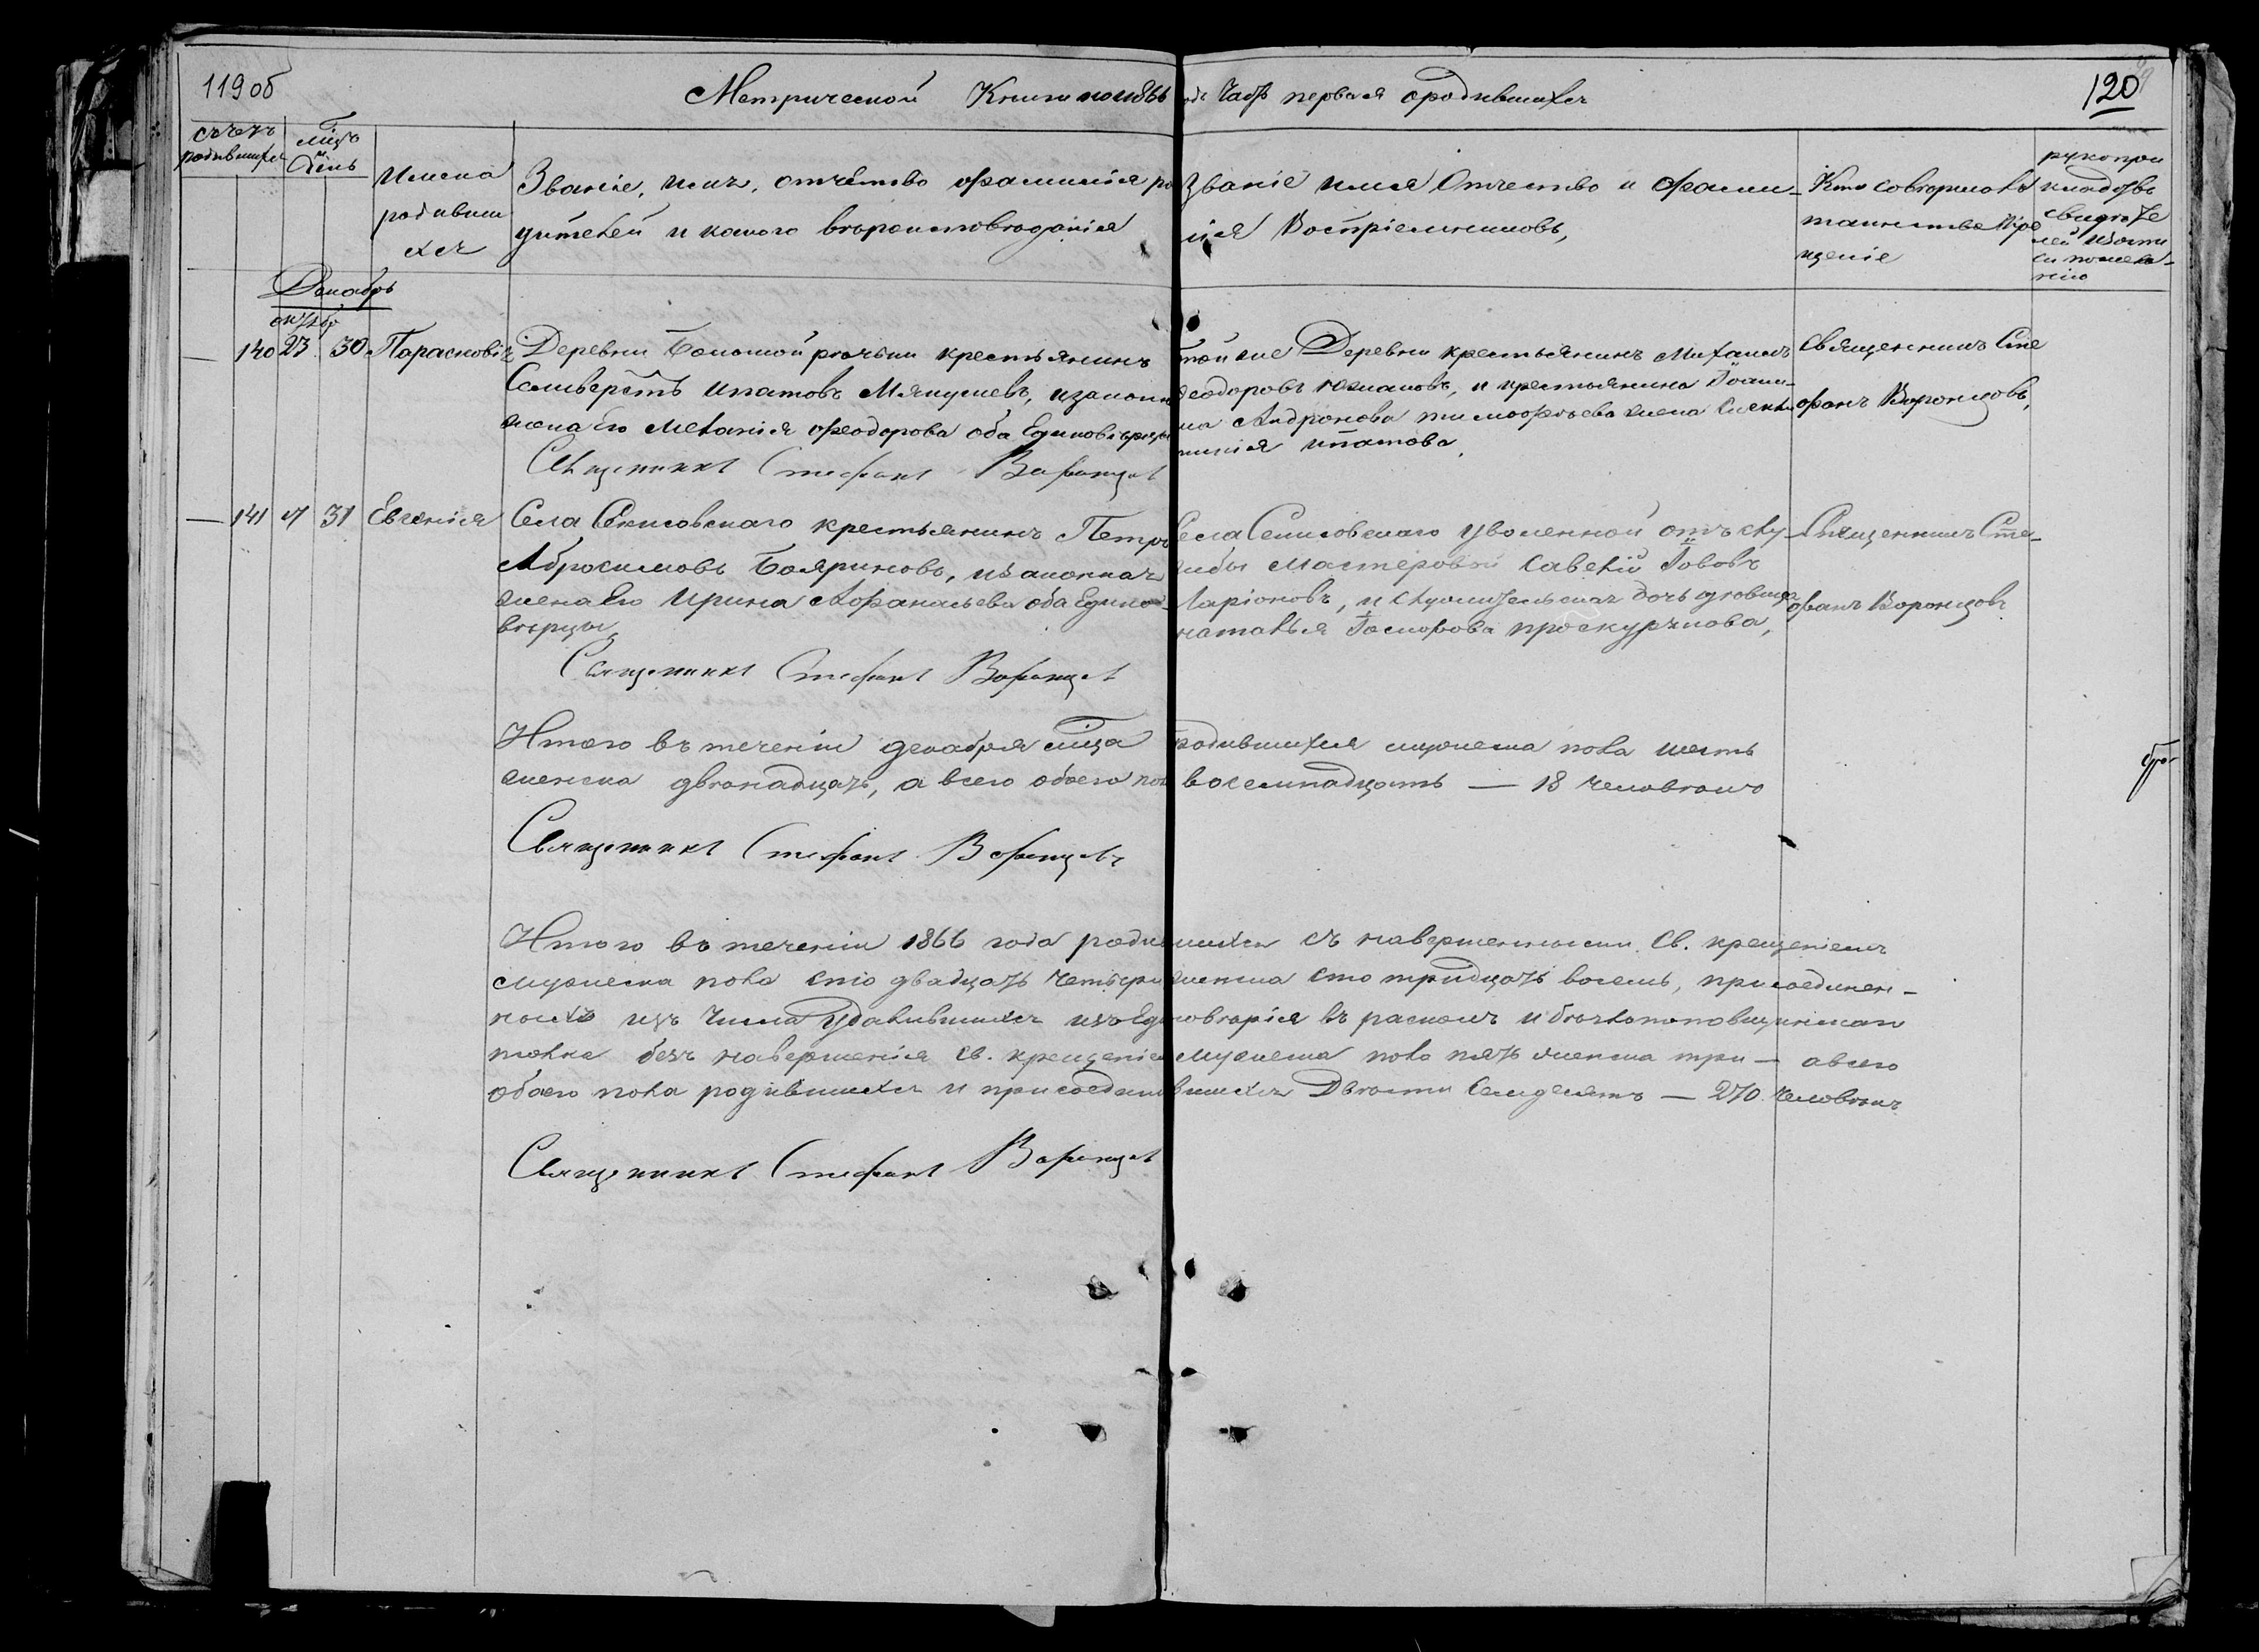 119 об
Метрической Книги на 1866 года Часть первая о родившихся
120
счетъ родившихся
мѣсъ и день
Имена родившихся
Званіе, имя, отчество и фамилія ро
дителей и какого вѣроисповѣданія
Званіе имя Отчество и фами-
лія Воспріемниковъ,
Кто совершалъ
таинство Кре
щенія
рукопри
кладство
свидѣте
лей
по жела-
нію
Декабрь
140 23 30 Парасковія
Деревни Большой крестьянинъ
Селиверстъ Ипатовъ Мякушевъ, и законная
жена его Меланія Феодорова оба Единовѣрцы
Священникъ Стефанъ Воронцовъ
той же Деревни крестьянинъ Михаилъ
Феодоровъ и крестьянина
Андронова Тимофѣева жена
Ипатова,
Священникъ Сте
фанъ Воронцовъ,
141 31 Евгенія
Села крестьянинъ Петръ
Абросимовъ Бояриновъ, и законная
жена его Ирина Афанасьева оба Едино-
вѣрцы,
Священникъ Стефанъ Воронцовъ
Села уволенной отъ слу-
жбы мастеровой Савелій Іововъ
Ларіоновъ, и дочь дѣвица
Наталья Проскурякова,
Священникъ Сте-
фанъ Воронцовъ
Итого въ теченіи декабря мѣсяца родившихся мужеска пола шесть
женска двѣнадцать, а всего обоего пола восемнадцать — 18 человѣкъ
Священникъ Стефанъ Воронцовъ
Итого въ теченіи 1866 года родившихся съ навершенными Св. крещеніемъ
мужеска пола сто двадцать четыре женска сто тридцать восемь, присоединен-
ныхъ изъ числа удалившихся изъ Единовѣрія въ расколъ и
толка безъ навершенія Св. крещенія мужеска пола пять женска три — а всего
обоего пола родившихся и присоединившихся Двѣсти Семдесятъ — 270 человѣкъ
Священникъ Стефанъ Воронцовъ